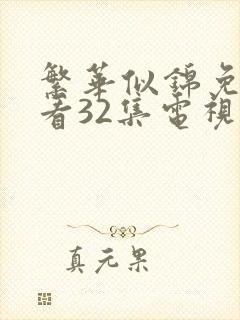 繁華似錦免
看32集電視
真元果